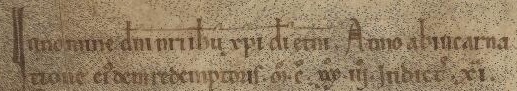 In nomine dni nri ihu xpi di etni. Anno ab incarna
tione eidem redemptoris. o. c. xx. iiij. Indict. xi.